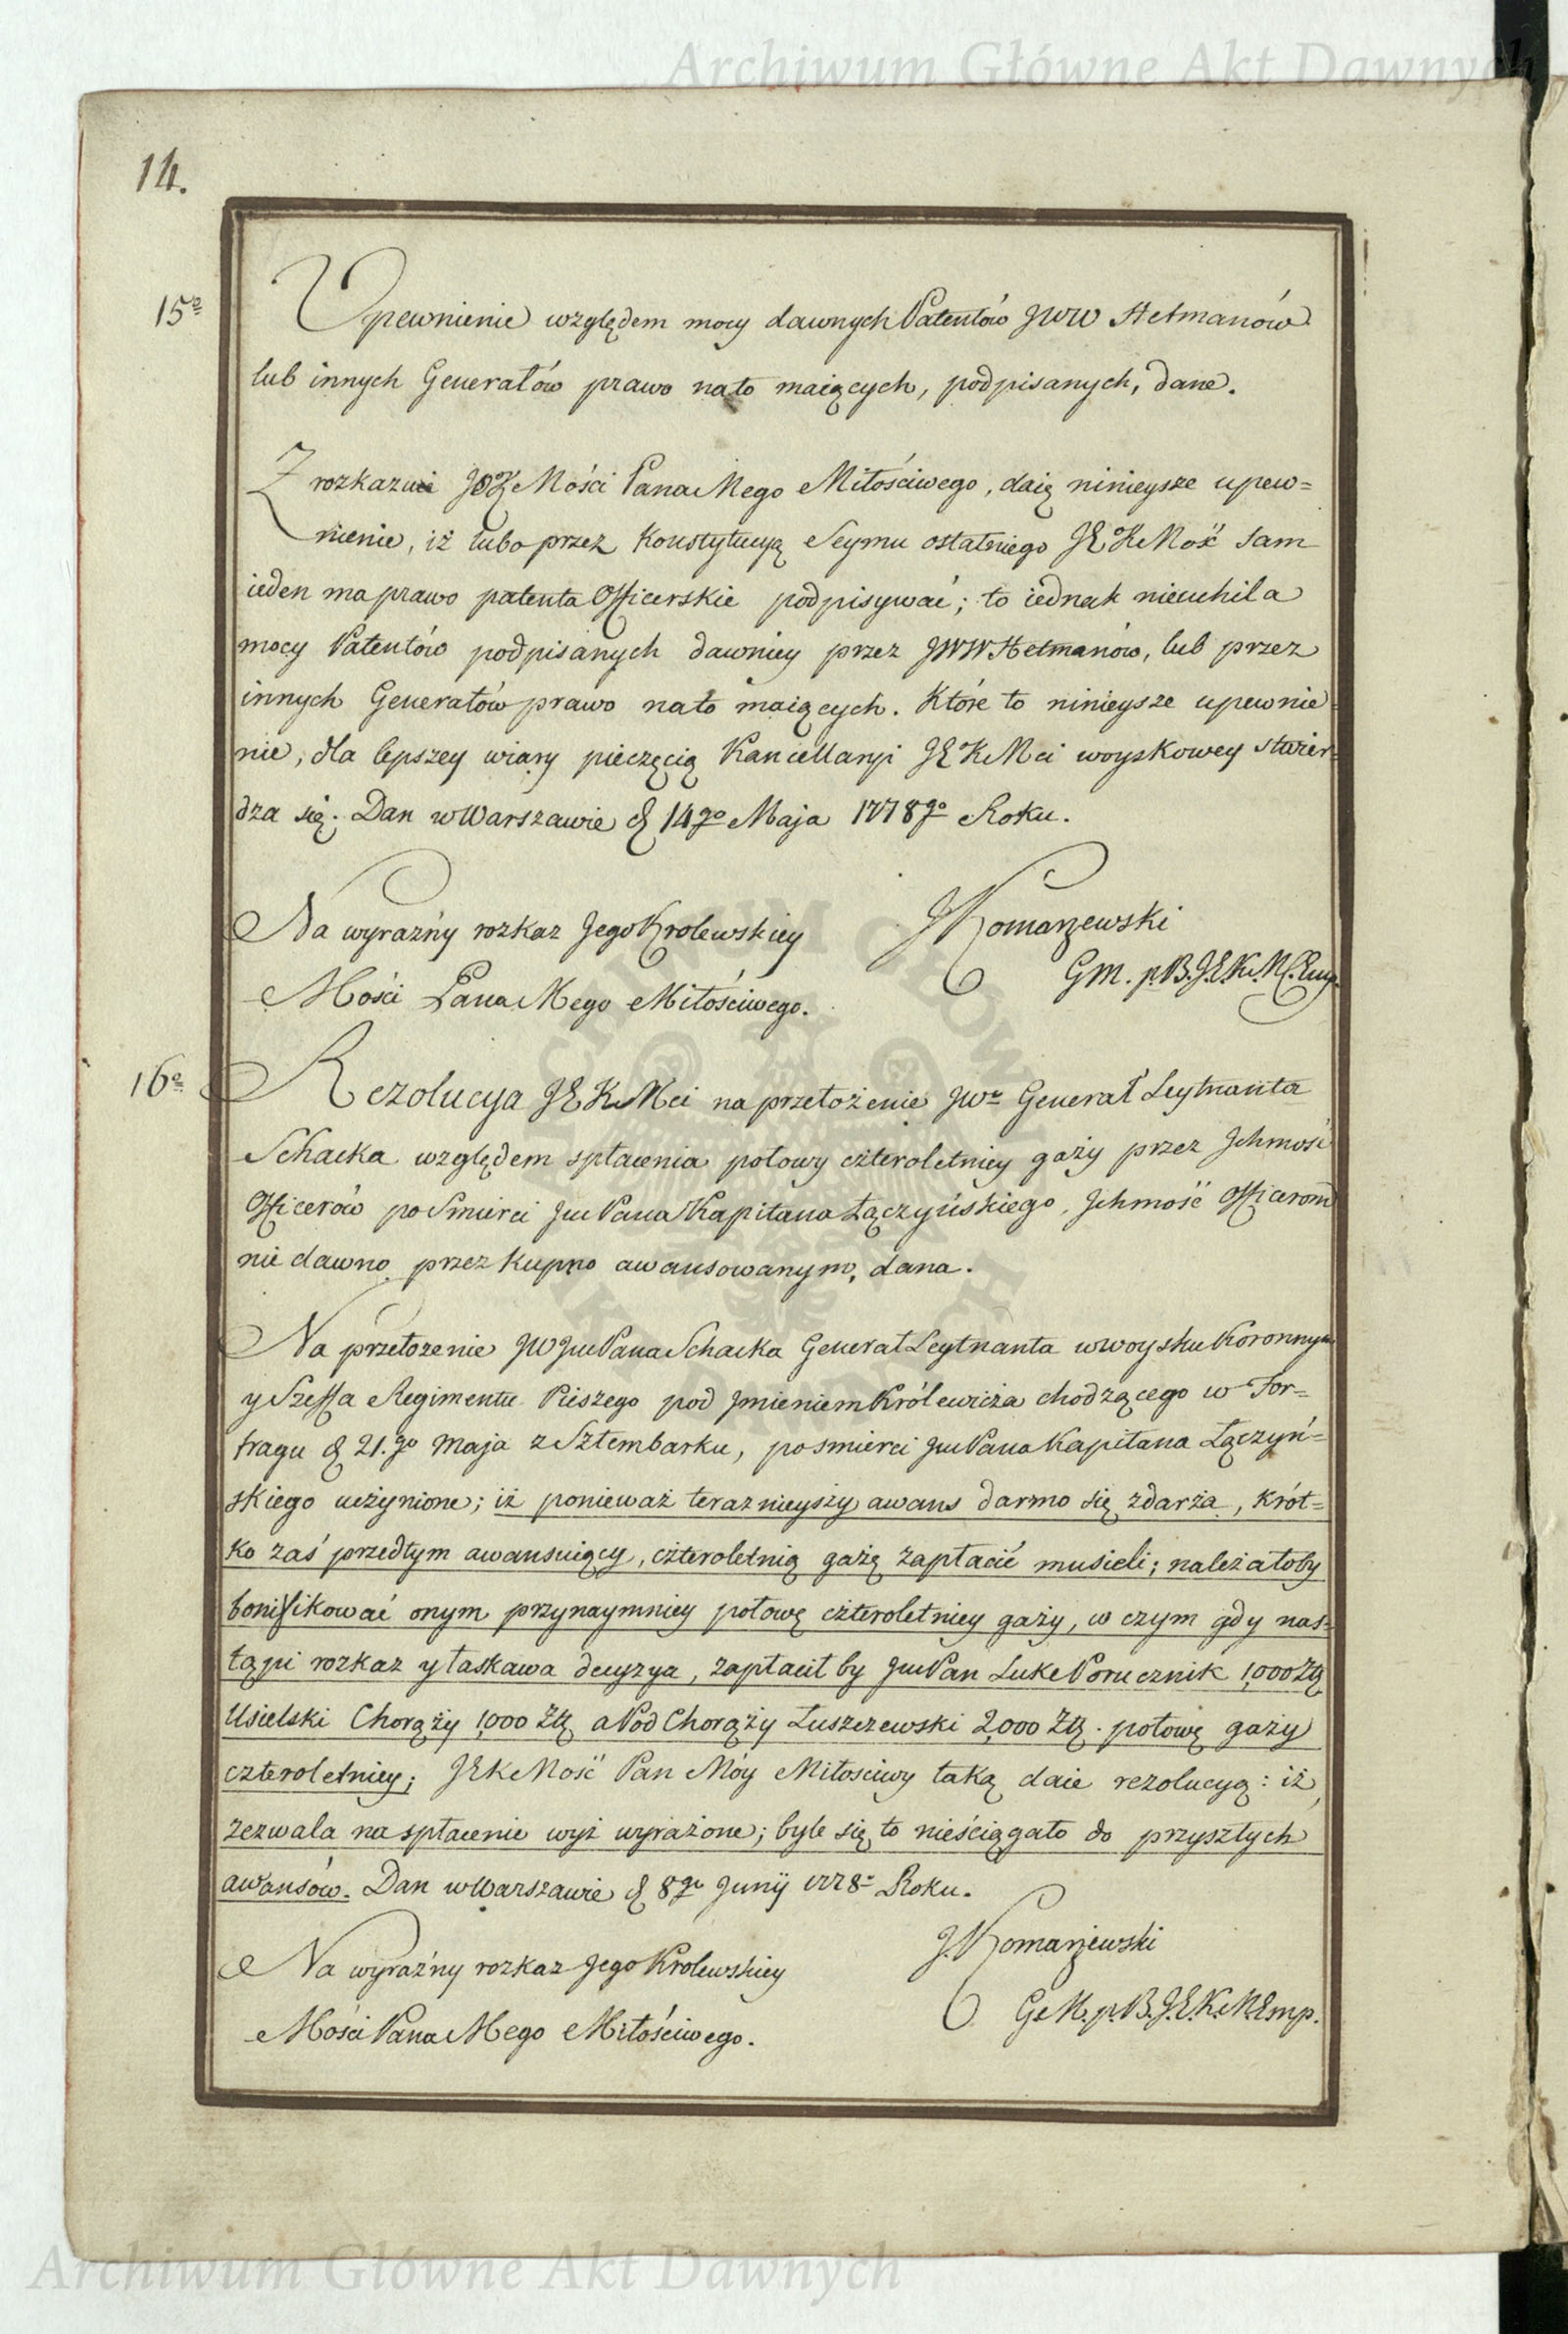 Archiwum Główne Akt Dawnych
14.
15º
Upewnienie względem mocy dawnych Patentów JWW Hetmanów
lub innych Generałów prawo nato maiących, podpisanych, dane.
Z rozkazu JEKMości Pana Mego Miłościwego, daię ninieysze upew=
nienie, iż lubo przez Konstytucyą Seymu ostatniego JEKMość sam
ieden ma prawo patenta Officerskie podpisywać; to iednak nieuchila
mocy Patentów podpisanych dawniey przez JWW Hetmanów, lub przez
innych Generałów prawo nato maiących. Które to ninieysze upewnie=
nie, dla lepszey wiary pieczęcią Kancellaryi JEKMci woyskowey stwier=
dza się. Dan w Warszawie d 14go Maja 1778go Roku.
Na wyraźny rozkaz Jego Krolewskiey
Mości Pana Mego Miłościwego.
J Komarzewski
GM. p.B.J.E.K.M.
16º
Rezolucya JEKMci na przełożenie JWo Generał Leytnanta
Schacka względem spłacenia połowy czteroletniey gaży przez Jchmość
Officerów po Smierci Jm Pana Kapitana Łączyńskiego, Jchmość Officerom
nie dawno przez kupno awansowanym, dana.
Na przełożenie JW Jm Pana Schacka Generał Leytnanta w woysku Koronnym
y Szeffa Regimentu Pieszego pod Jmieniem Królewicza chodzącego w For=
tragu d 21.go Maja z Sztembarku, po smierci Jm Pana Kapitana Łączyń=
skiego uczynione; iż ponieważ teraznieyszy awans darmo się zdarza, krót=
ko zaś przedtym awansuiący, czteroletnią gażę zapłacić musieli; należałoby
bonifikować onym przynaymniey połowę czteroletniey gaży, w czym gdy nas=
tąpi rozkaz y łaskawa decyzya, zapłacił by Jm Pan Luke Porucznik 1,000 Zł
Usielski Chorąży 1,000 Zł a Pod Chorąży Łuszczewski 2,000 Zł. połowę gaży
czteroletniey; JEKMość Pan Móy Miłosciwy taką daie rezolucyą: iż
zezwala na spłacenie wyż wyrażone; byle się to nieściągało do przyszłych
awansów. Dan w Warszawie d 8go Junij 1778º Roku.
Na wyraźny rozkaz Jego Krolewskiey
Mości Pana Mego Miłościwego.
J. Komarzewski
G.M. p.B.J.E.K.M. mp.
Archiwum Główne Akt Dawnych